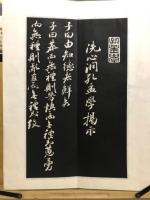 洗心洞孔孟學揭示
子曰由知德者鮮矣
子曰恭而無禮則勞慎而無禮則葸勇
而無禮則亂直而無禮則絞